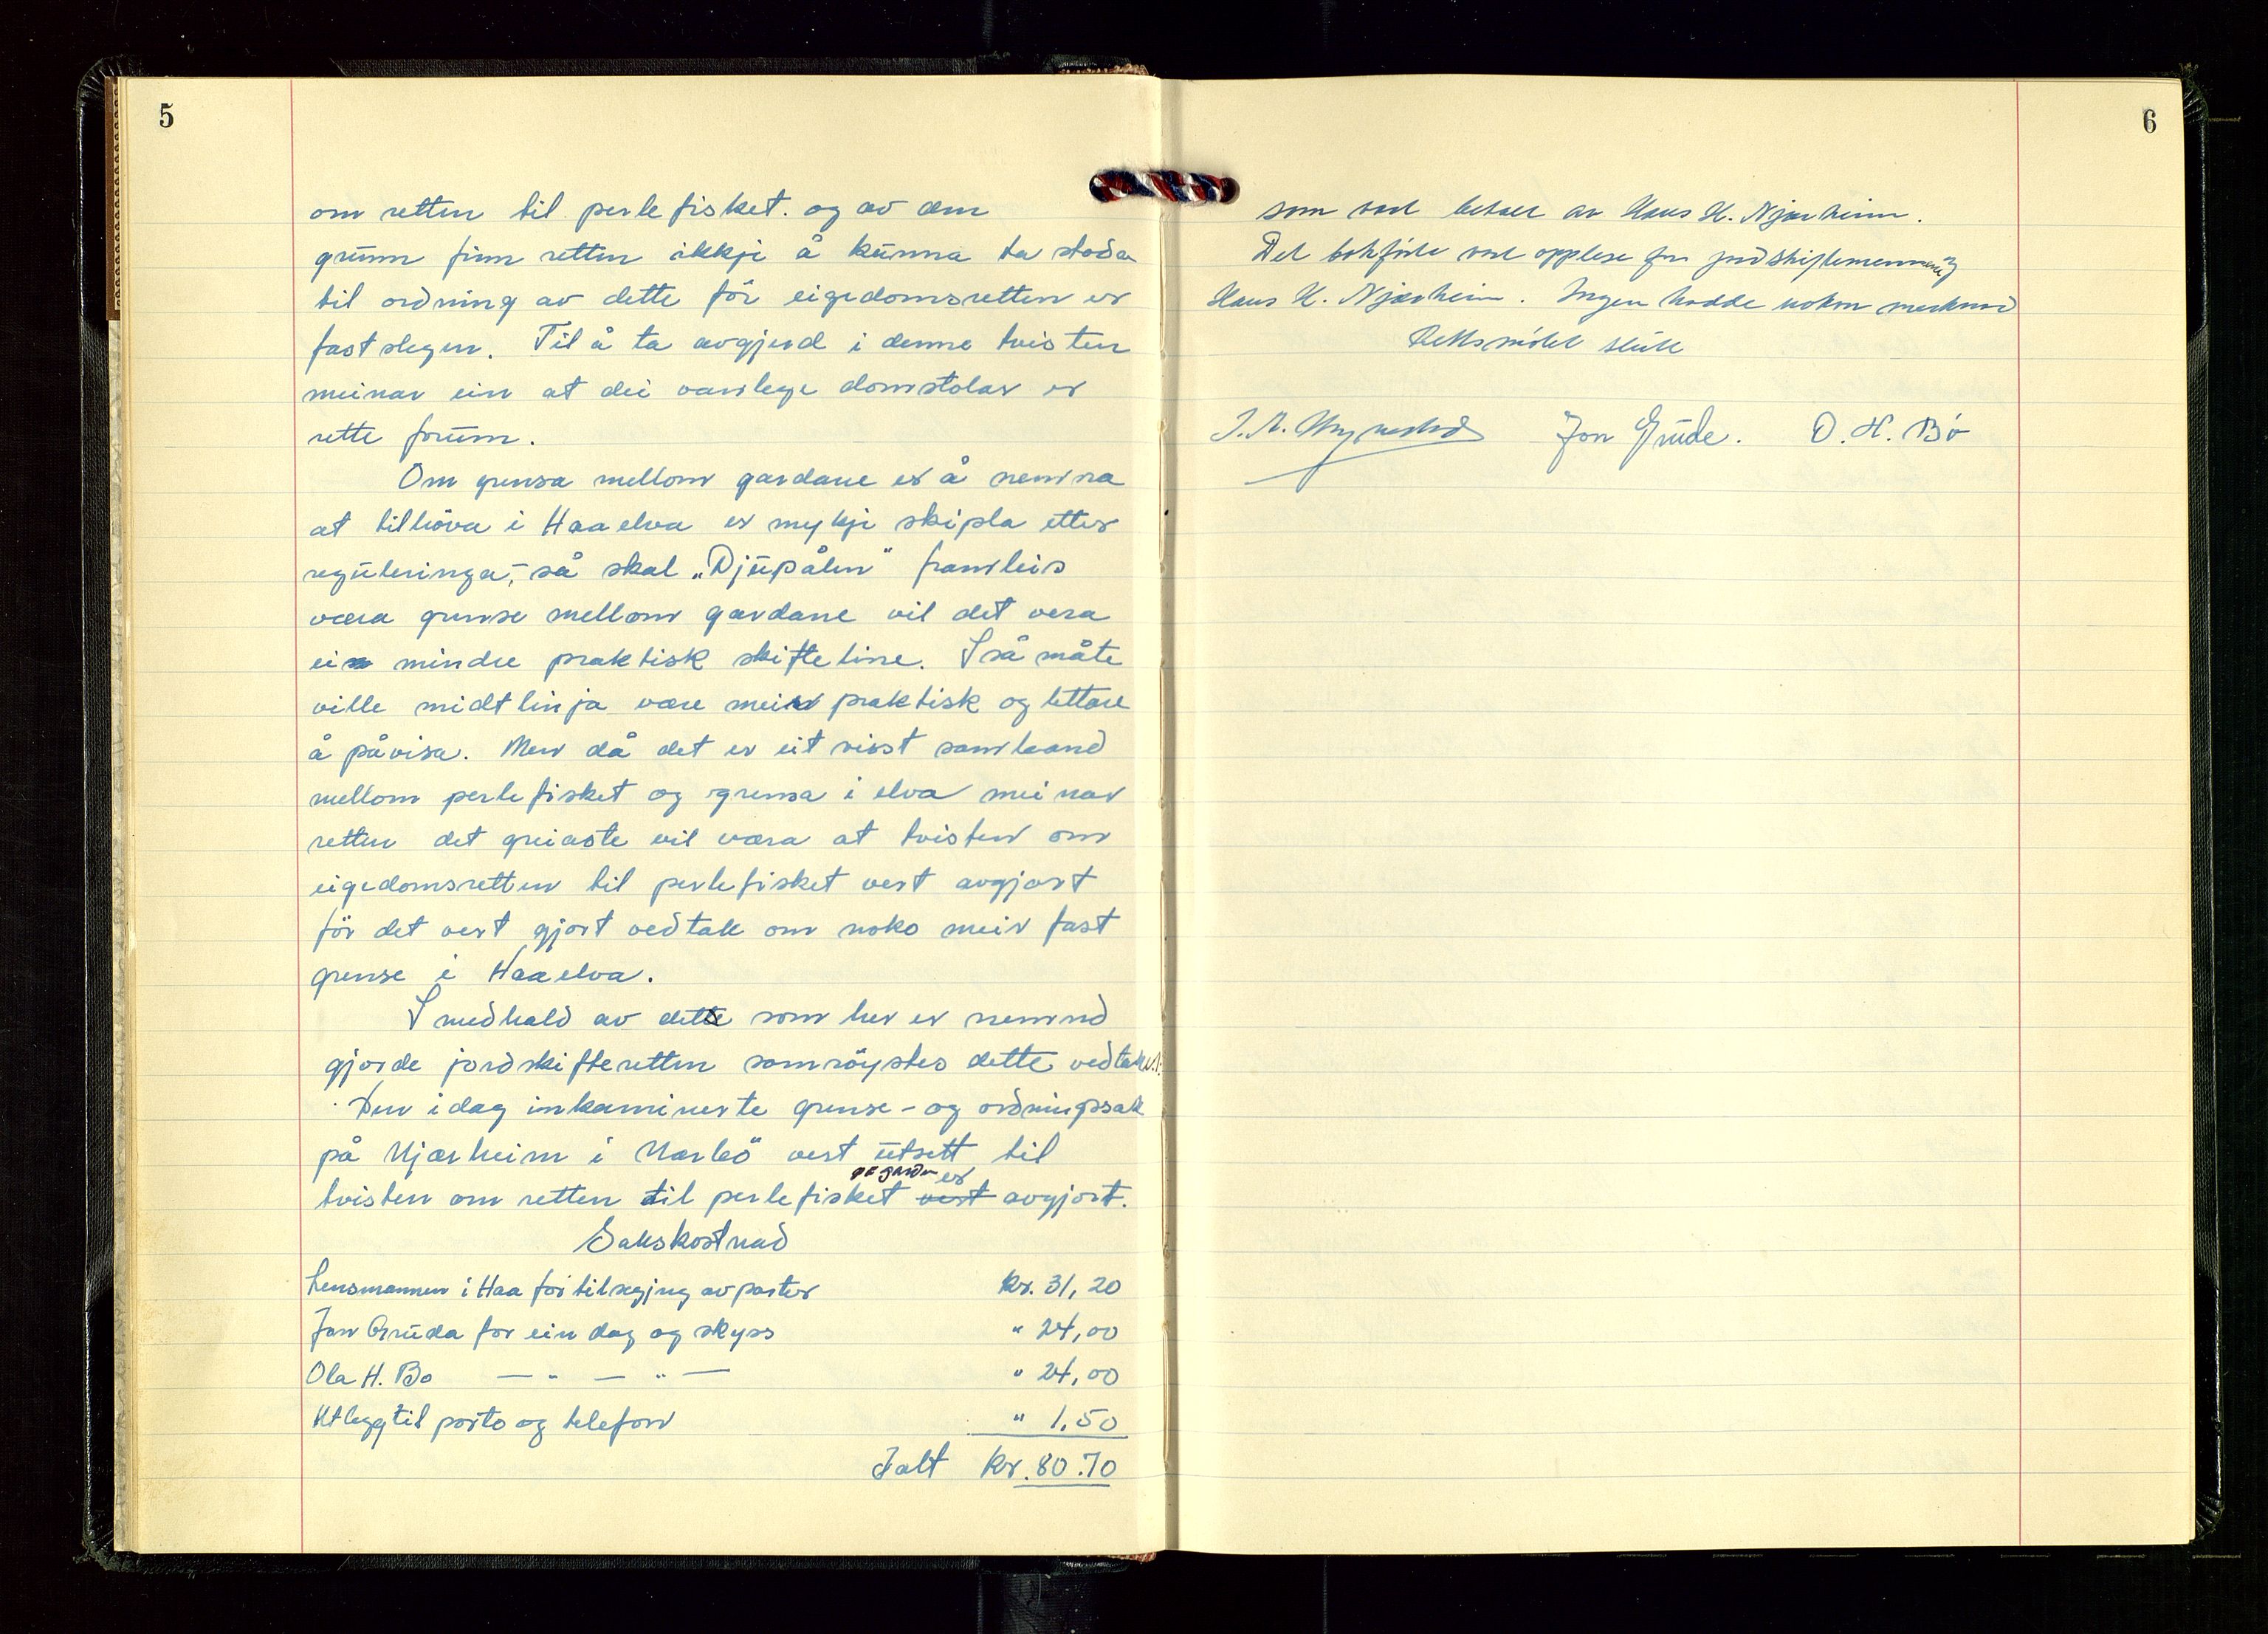 5
om retten til perlefisket. og av den
grunn finn retten ikkje å kunna ta stoda
til ordning av dette för eigedomsretten er
fastslegen. Til å ta avgjerd i denne tvisten
meinar ein at dei vanlege domstolar er
rette forum.
Om grensa mellom gardane er å nemna
at tilhöva i Haaelva er mykje skipla etter
reguleringa, så skal „Djupålen" framleis
væra grense mellom gardane vil det vera
ei mindre praktisk skifteline. I så måte
ville midtlinja være meir praktisk og lettare
å påvisa. Men då det er eit visst samband
mellom perlefisket og grensa i elva meinar
retten det greiaste vil væra at tvisten om
eigedomsretten til perlefisket vert avgjort
för det vert gjort vedtak om noko meir fast
grense i Haaelva.
I medhald av dette som her er nemnd
gjorde jordskifteretten samröystes dette vedtak
Den idag inkaminerte grense- og ordningssak
på Njærheim i Nærbö vert utsett til
på garden er
tvisten om retten til perlefisket vert avgjort.
Sakskostnad
Lensmannen i Haa for tilsegjing av parter kr. 31,20
Jon Gruda for ein dag og skyss " 24,00
Ola H. Bo — " — " — " 24,00
Utlegg til porto og telefon " 1,50
Ialt kr. 80.70
6
som vart betalt av Hans K. Njærheim.
Det bokförte vart opplese for jordskiftemennene og
Hans K. Njærheim. Ingen hadde nokon merknad
Rettsmötet slutt
Jon Grude. O. H. Bö